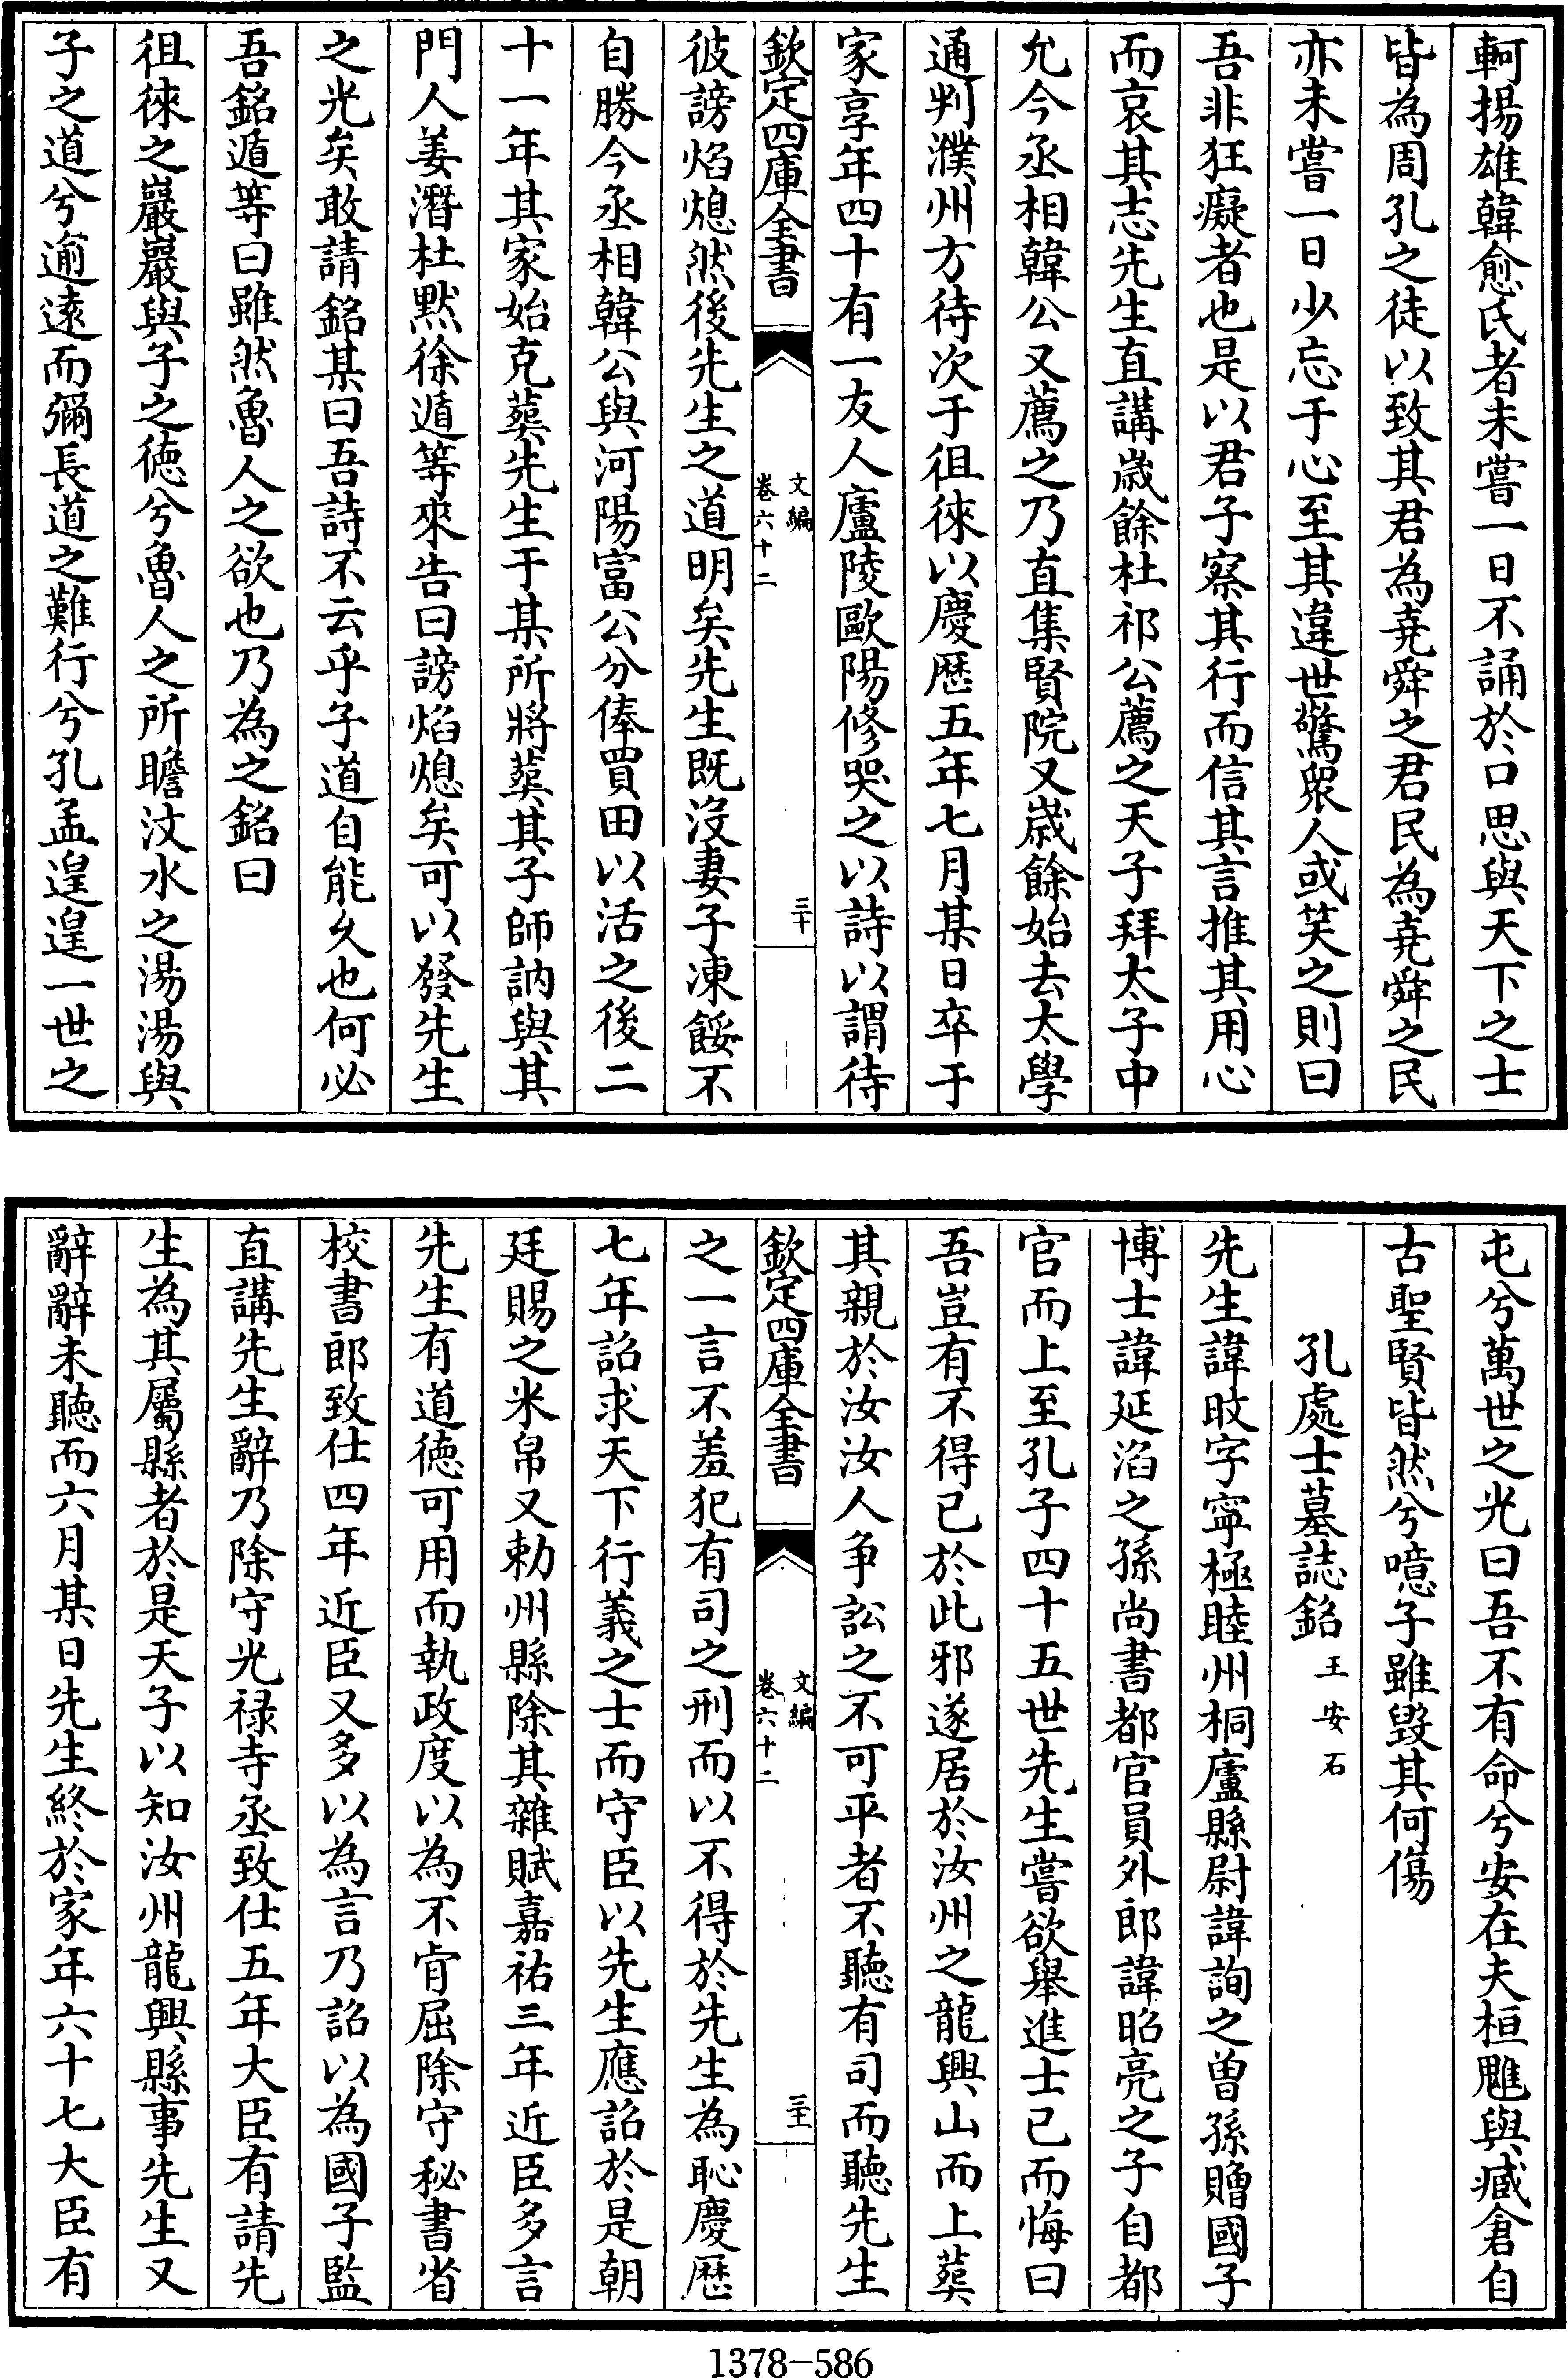 軻揚雄韓愈氏者未嘗一日不誦於口思與天下之士
皆為周孔之徒以致其君為堯舜之君民為堯舜之民
亦未嘗一日少忘于心至其違世驚衆人或笑之則曰
吾非狂癡者也是以君子察其行而信其言推其用心
而哀其志先生直講歳餘杜祁公薦之天子拜太子中
允今丞相韓公又薦之乃直集賢院又歳餘始去太學
通判濮州方待次于徂徠以慶歴五年七月某日卒于
家享年四十有一友人廬陵歐陽修哭之以詩以謂待
欽定四庫全書
文編
卷六十二
三十
彼謗焰熄然後先生之道明矣先生既沒妻子凍餒不
自勝今丞相韓公與河陽富公分俸買田以活之後二
十一年其家始克葬先生于某所將葬其子師訥與其
門人姜潛杜默徐遁等來告曰謗焰熄矣可以發先生
之光矣敢請銘某曰吾詩不云乎子道自能久也何必
吾銘遁等曰雖然魯人之欲也乃為之銘曰
徂徠之巖巖與子之徳兮魯人之所瞻汶水之湯湯與
子之道兮逾逺而彌長道之難行兮孔孟遑遑一世之
屯兮萬世之光曰吾不有命兮安在夫桓魋與臧倉自
古聖賢皆然兮噫子雖毀其何傷
孔處士墓誌銘 王安石
先生諱旼字寧極睦州桐廬縣尉諱詢之曽孫贈國子
博士諱延滔之孫尚書都官員外郎諱昭亮之子自都
官而上至孔子四十五世先生嘗欲舉進士已而悔曰
吾豈有不得已於此邪遂居於汝州之龍興山而上葬
其親於汝汝人争訟之不可平者不聽有司而聽先生
欽定四庫全書
文編
卷六十二
三十一
之一言不羞犯有司之刑而以不得於先生為恥慶歴
七年詔求天下行義之士而守臣以先生應詔於是朝
廷賜之米帛又勅州縣除其雜賦嘉祐三年近臣多言
先生有道徳可用而執政度以為不肯屈除守秘書省
校書郎致仕四年近臣又多以為言乃詔以為國子監
直講先生辭乃除守光禄寺丞致仕五年大臣有請先
生為其屬縣者於是天子以知汝州龍興縣事先生又
辭辭未聽而六月某日先生終於家年六十七大臣有
1378-586